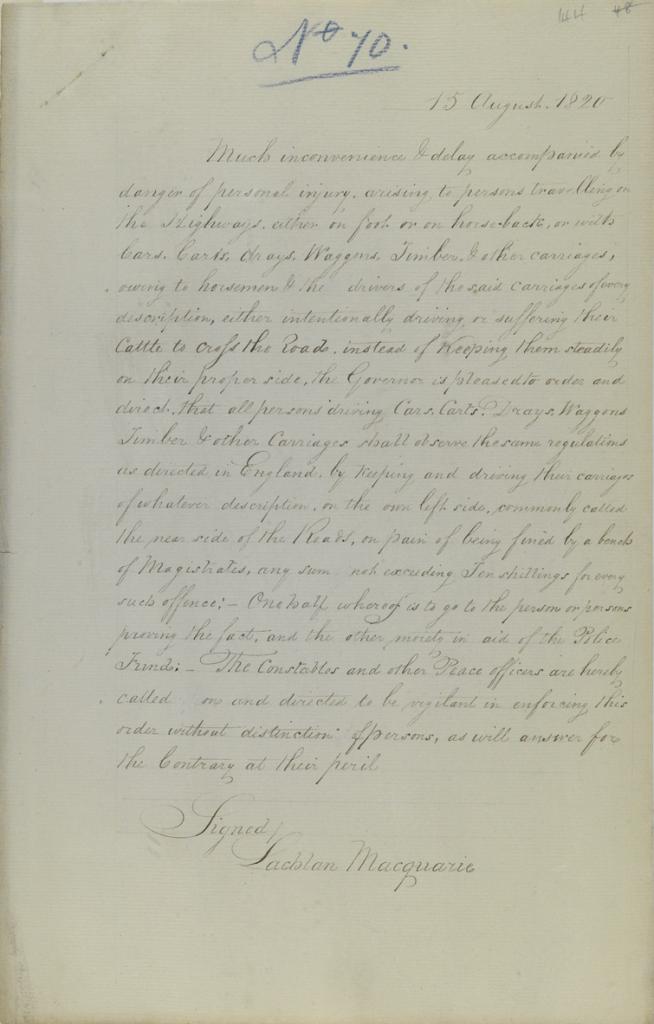 144 48
No 70.
15 August. 1820
Much inconvenience & delay accompanied by
danger of personal injury, arising to persons travelling on
the Highways. either on foot or on horse-back, or with
Cars. Carts, drays. Waggons, Timber, & other carriages,
owing to horsemen & the drivers of the said carriages of every
description, either intentionally driving, or suffering their
Cattle to cross the Roads, instead of Keeping them steadily
on their proper side, the Governor is pleased to order and
direct. that all persons driving Cars, Carts, Drays, Waggons
Timber & other Carriages shall observe the same regulations
as directed in England. by Keeping and driving their carriages
of whatever description, on the own left side, commonly called
the near side of the Roads, on pain of being fined by a bench
of Magistrates, any sum not exceeding Ten shillings for every
such offence; - One half whereof is to go to the person or persons
proving the fact, and the other moiety in aid of the Police
Fund; - The Constables and other Peace officers are hereby
called on and directed to be vigilant in enforcing this
order without distinction of persons, as will answer for
the Contrary at their peril
Signed/
Lachlan Macquarie